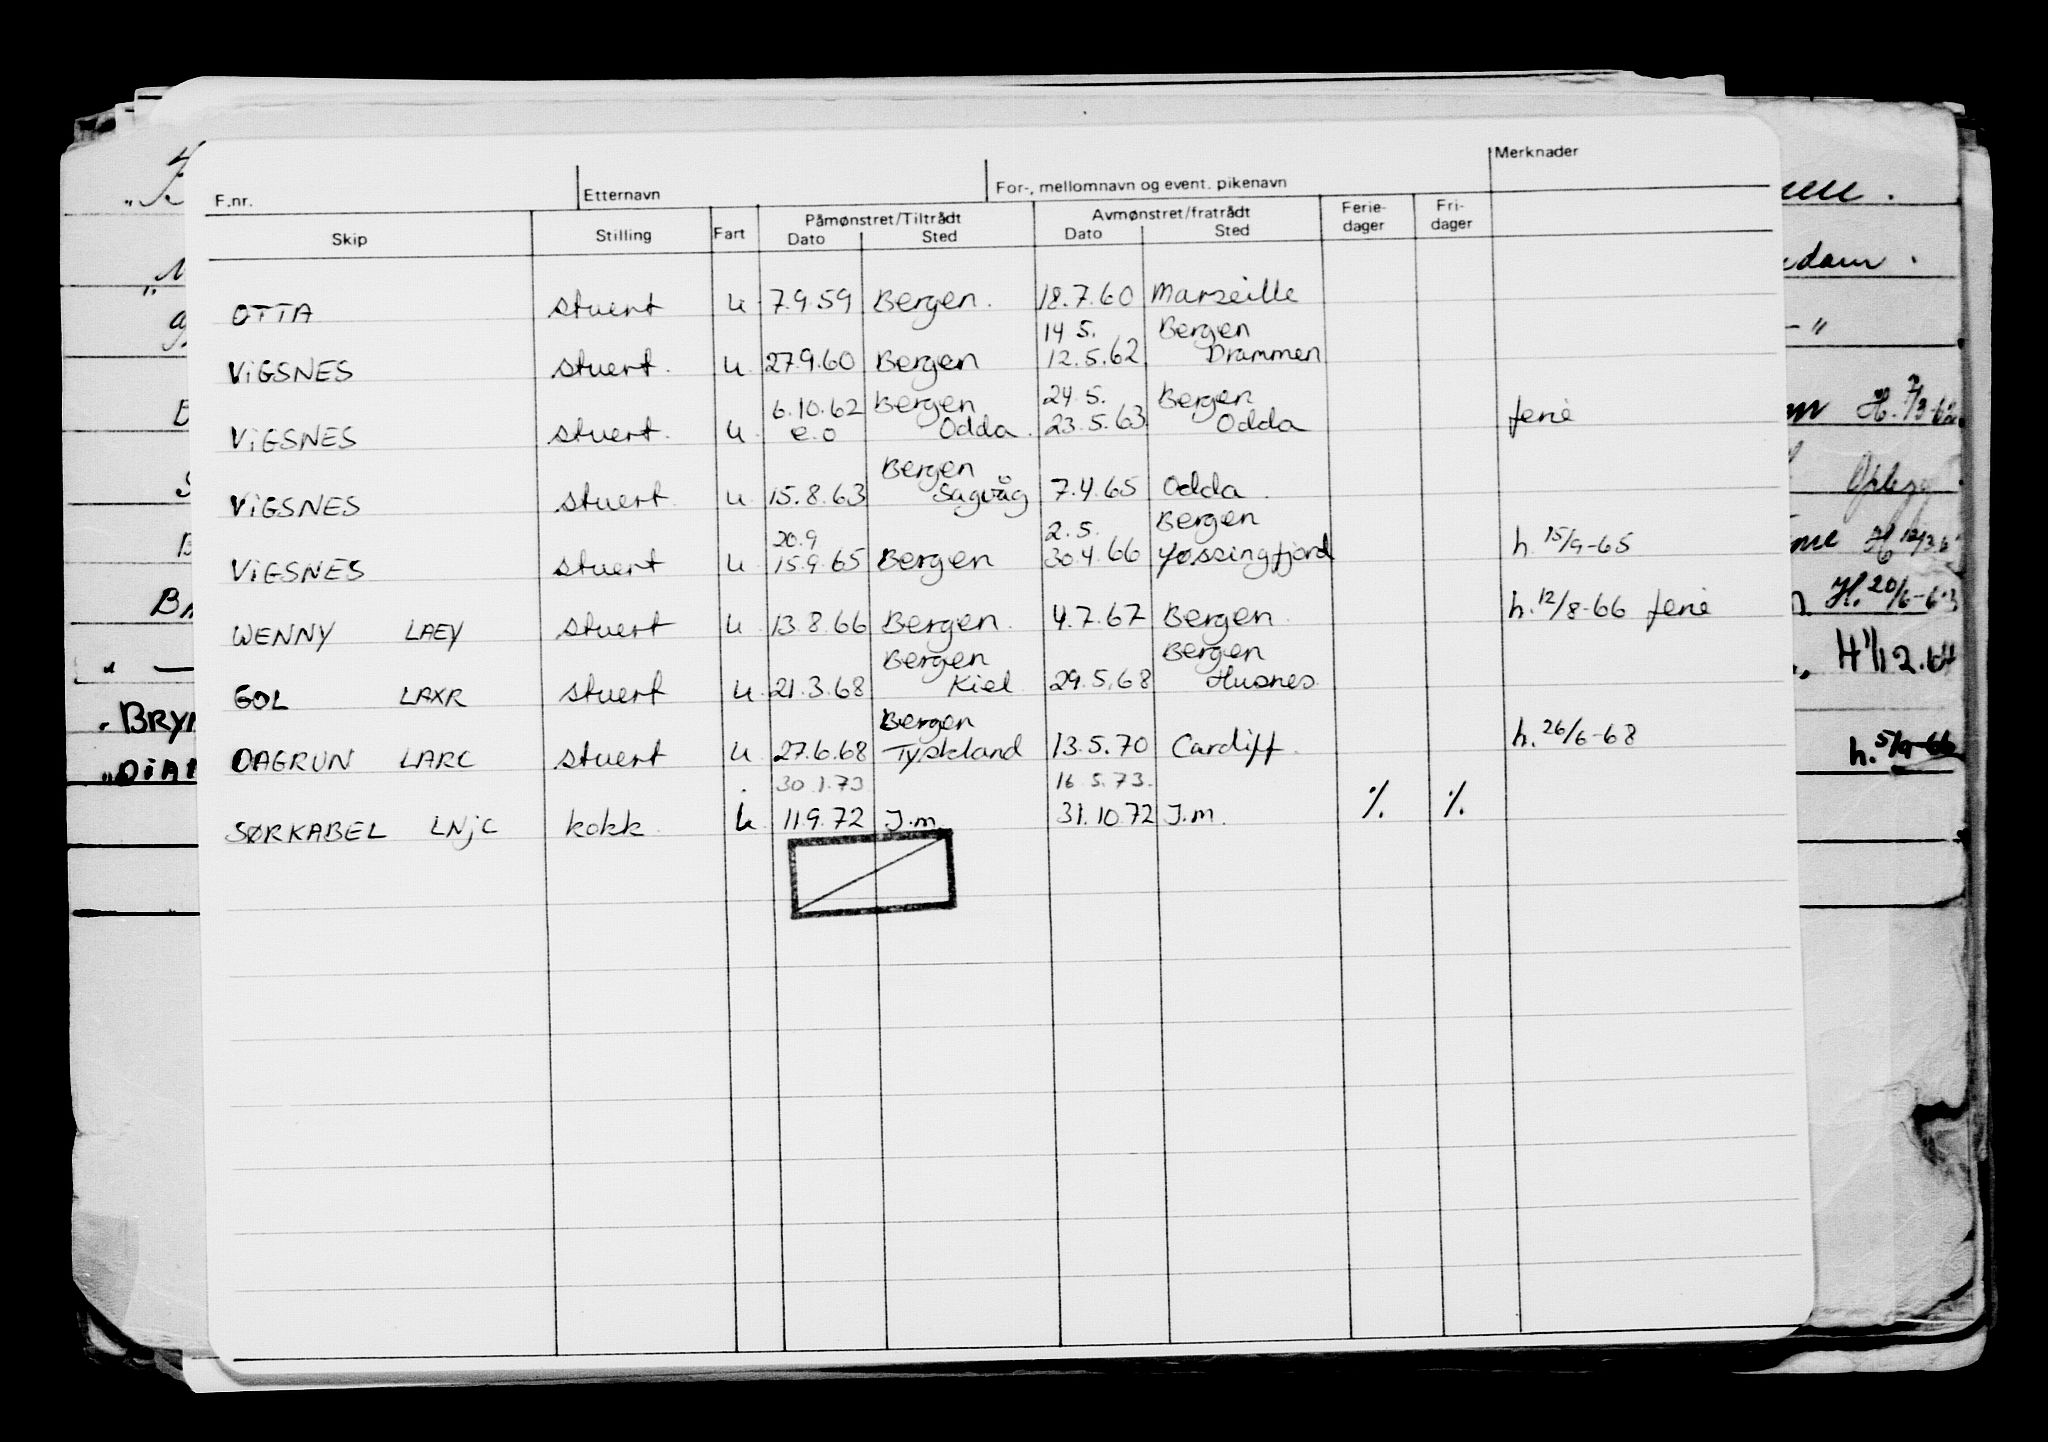 F.nr. Etternavn For-, mellomnavn og event. pikenavn Merknader
Skip Stilling Fart Påmønstret/Tiltrådt Avmønstret/fratrådt Ferie- Fri-
Dato Sted Dato Sted dager dager
OTTA stuert u 7.9.59 Bergen. 18.7.60 Marseille
14 5. Bergen
VIGSNES stuert. u. 27.9.60 Bergen 12.5.62 Drammen
6.10.62 Bergen 24.5. Bergen
VIGSNES stuert. u. e.o Odda. 23.5.63 Odda ferie
Bergen
VIGSNES stuert. u 15.8.63 Sagvåg 7.4.65 Odda.
20.9 2.5. Bergen
VIGSNES stuert u 15.9.65 Bergen 30.4.66 Jøssingfjord h. 15/9-65
WENNY LAEY stuert u. 13.8.66 Bergen. 4.7.67 Bergen. h. 12/8-66 ferie
Bergen Bergen
GOL LAXR stuert u. 21.3.68 Kiel. 29.5.68 Husnes.
Bergen
DAGRUN LARC stuert u. 27.6.68 Tyskland 13.5.70 Cardiff. h. 26/6-68
30.1.73 16.5.73.
SØRKABEL LNJC kokk. u. 11.9.72 J.m. 31.10.72 J.m. % %
H. 20/6-63
H 1/12.64
BRY
h. 5/9-66